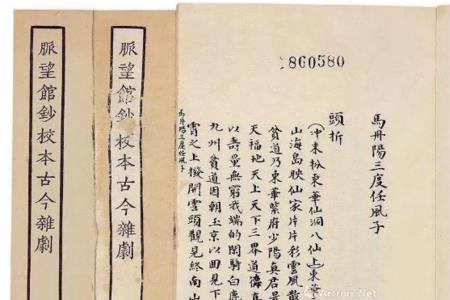 860580
馬丹陽三度任風子
頭折
(冲末扮東華仙洞八仙上東華
山海島映仙家片片彩雲風散
貧道乃東華紫府少陽真君
天福地天上天下三界道德真
以壽量無窮我端的閑騎白鹿
九州貧道因朝玉京以回見下
霄之上撥開雲頭觀見終南山
馬丹陽三度任風子
脈望館鈔校本古今雜劇
脈望館鈔校本古今雜劇